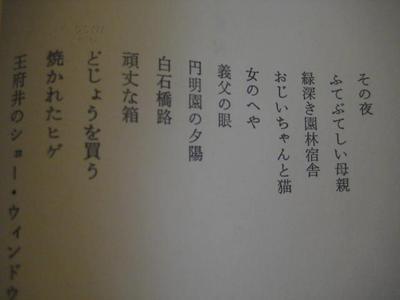 その夜
ふてぶてしい母親
緑深き園林宿舎
おじいちゃんと猫
女のへや
義父の眼
円明園の夕陽
白石橋路
頑丈な箱
どじょうを買う
焼かれたヒゲ
王府井のショー・ウィンドウ